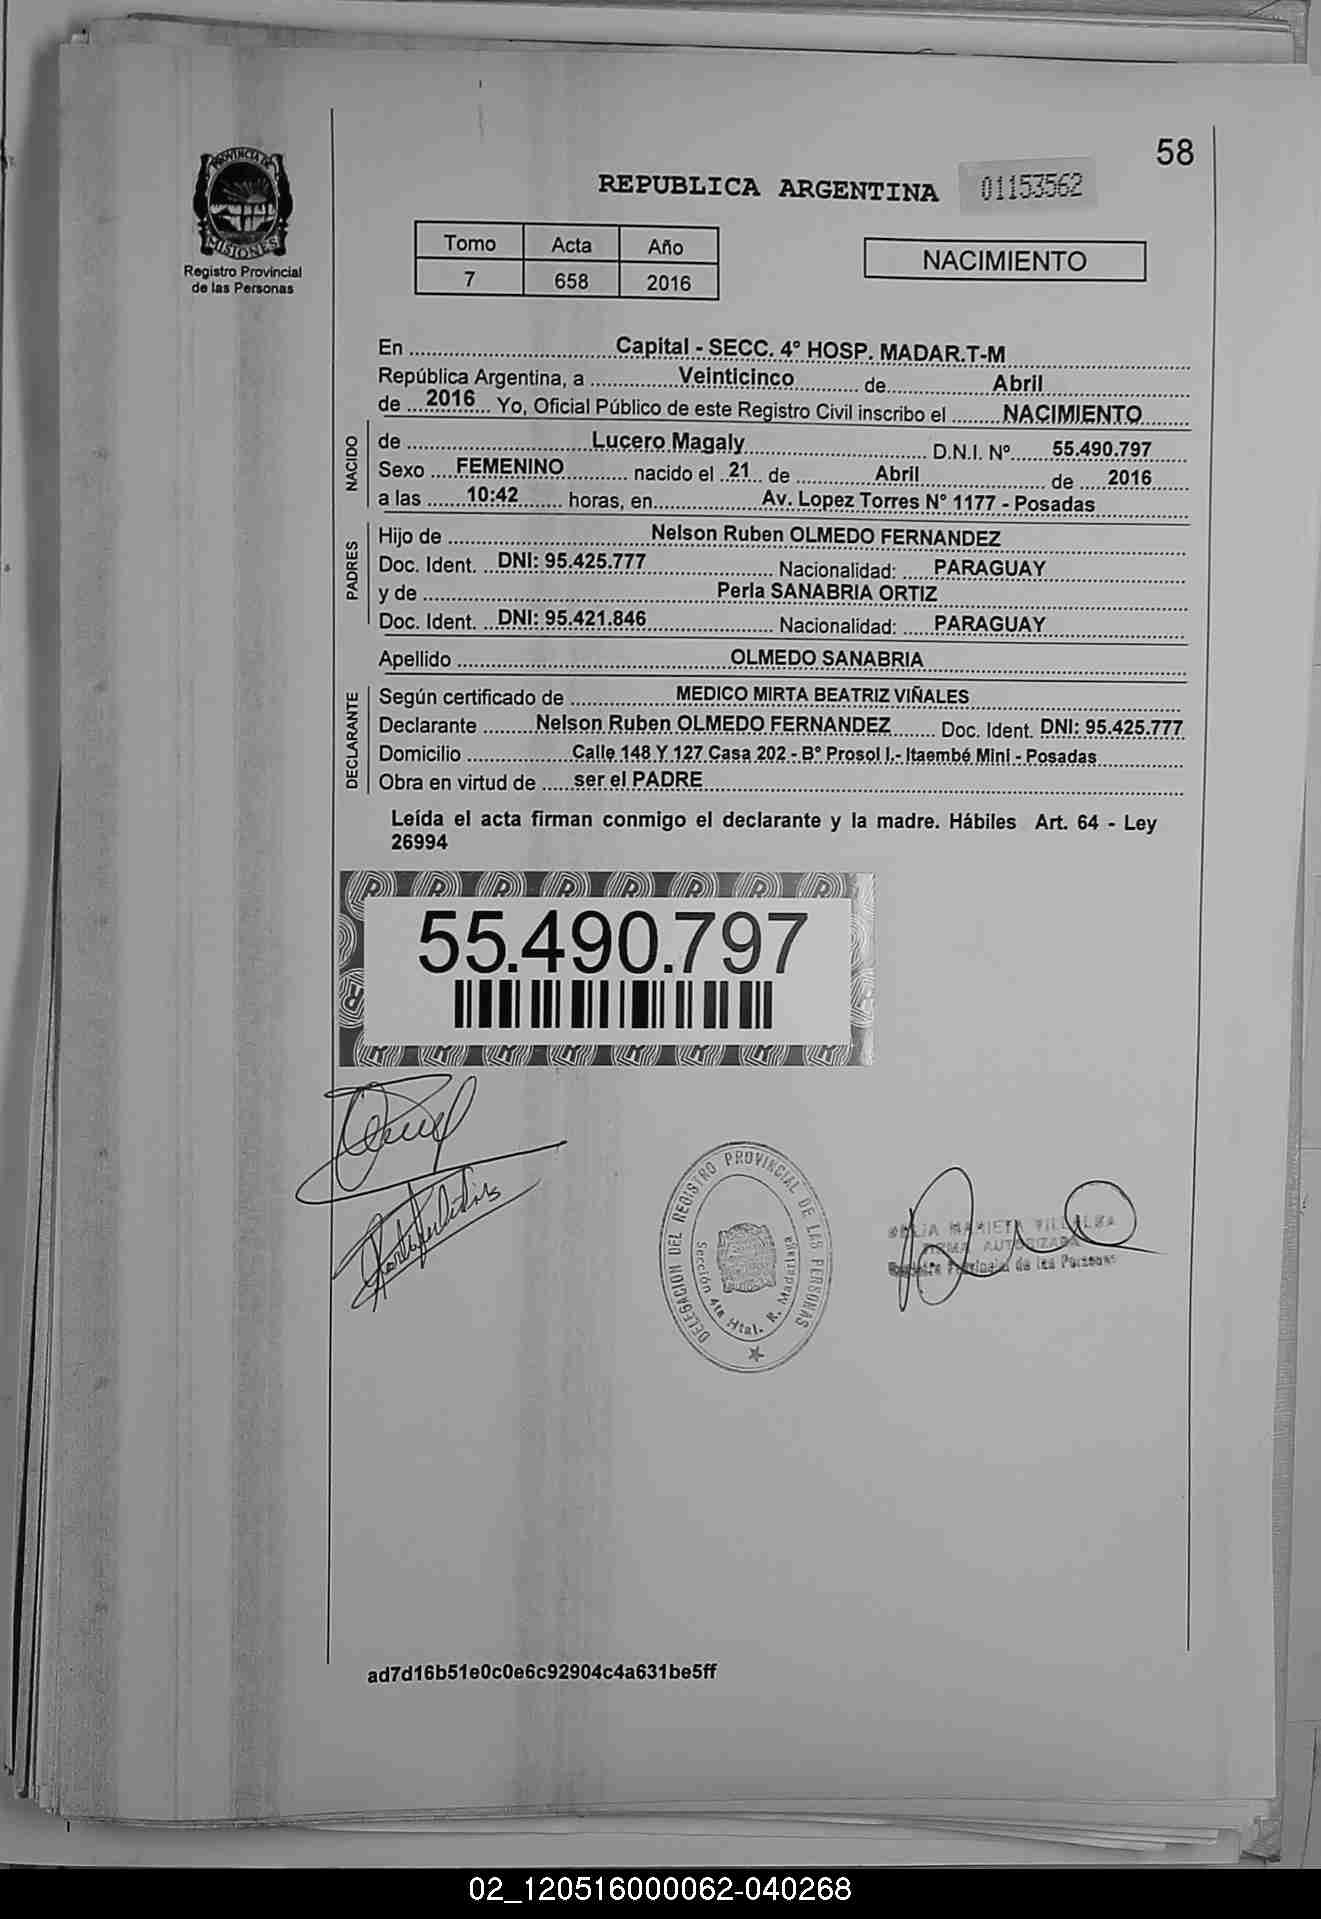 58
REPUBLICA ARGENTINA 01153562
PROVINCIA DE
MISIONES
Registro Provincial
de las Personas
Tomo Acta Año
7 658 2016
NACIMIENTO
En Capital - SECC. 4° HOSP. MADAR.T-M
República Argentina, a Veinticinco de Abril
de 2016 Yo, Oficial Público de este Registro Civil inscribo el NACIMIENTO
NACIDO
de Lucero Magaly D.N.I. Nº 55.490.797
Sexo FEMENINO nacido el 21 de Abril de 2016
a las 10:42 horas, en Av. Lopez Torres N° 1177 - Posadas
PADRES
Hijo de Nelson Ruben OLMEDO FERNANDEZ
Doc. Ident. DNI: 95.425.777 Nacionalidad: PARAGUAY
y de Perla SANABRIA ORTIZ
Doc. Ident. DNI: 95.421.846 Nacionalidad: PARAGUAY
Apellido OLMEDO SANABRIA
DECLARANTE
Según certificado de MEDICO MIRTA BEATRIZ VIÑALES
Declarante Nelson Ruben OLMEDO FERNANDEZ Doc. Ident. DNI: 95.425.777
Domicilio Calle 148 Y 127 Casa 202 - B° Prosol I.- Itaembé Mini - Posadas
Obra en virtud de ser el PADRE
Leída el acta firman conmigo el declarante y la madre. Hábiles Art. 64 - Ley
26994
55.490.797
DELEGACION DEL REGISTRO PROVINCIAL DE LAS PERSONAS
Sección 4ta Htal. R. Madariaga
VILLALBA
FIRMA AUTORIZADA
Registro Provincial de las Personas
ad7d16b51e0c0e6c92904c4a631be5ff
02_120516000062-040268